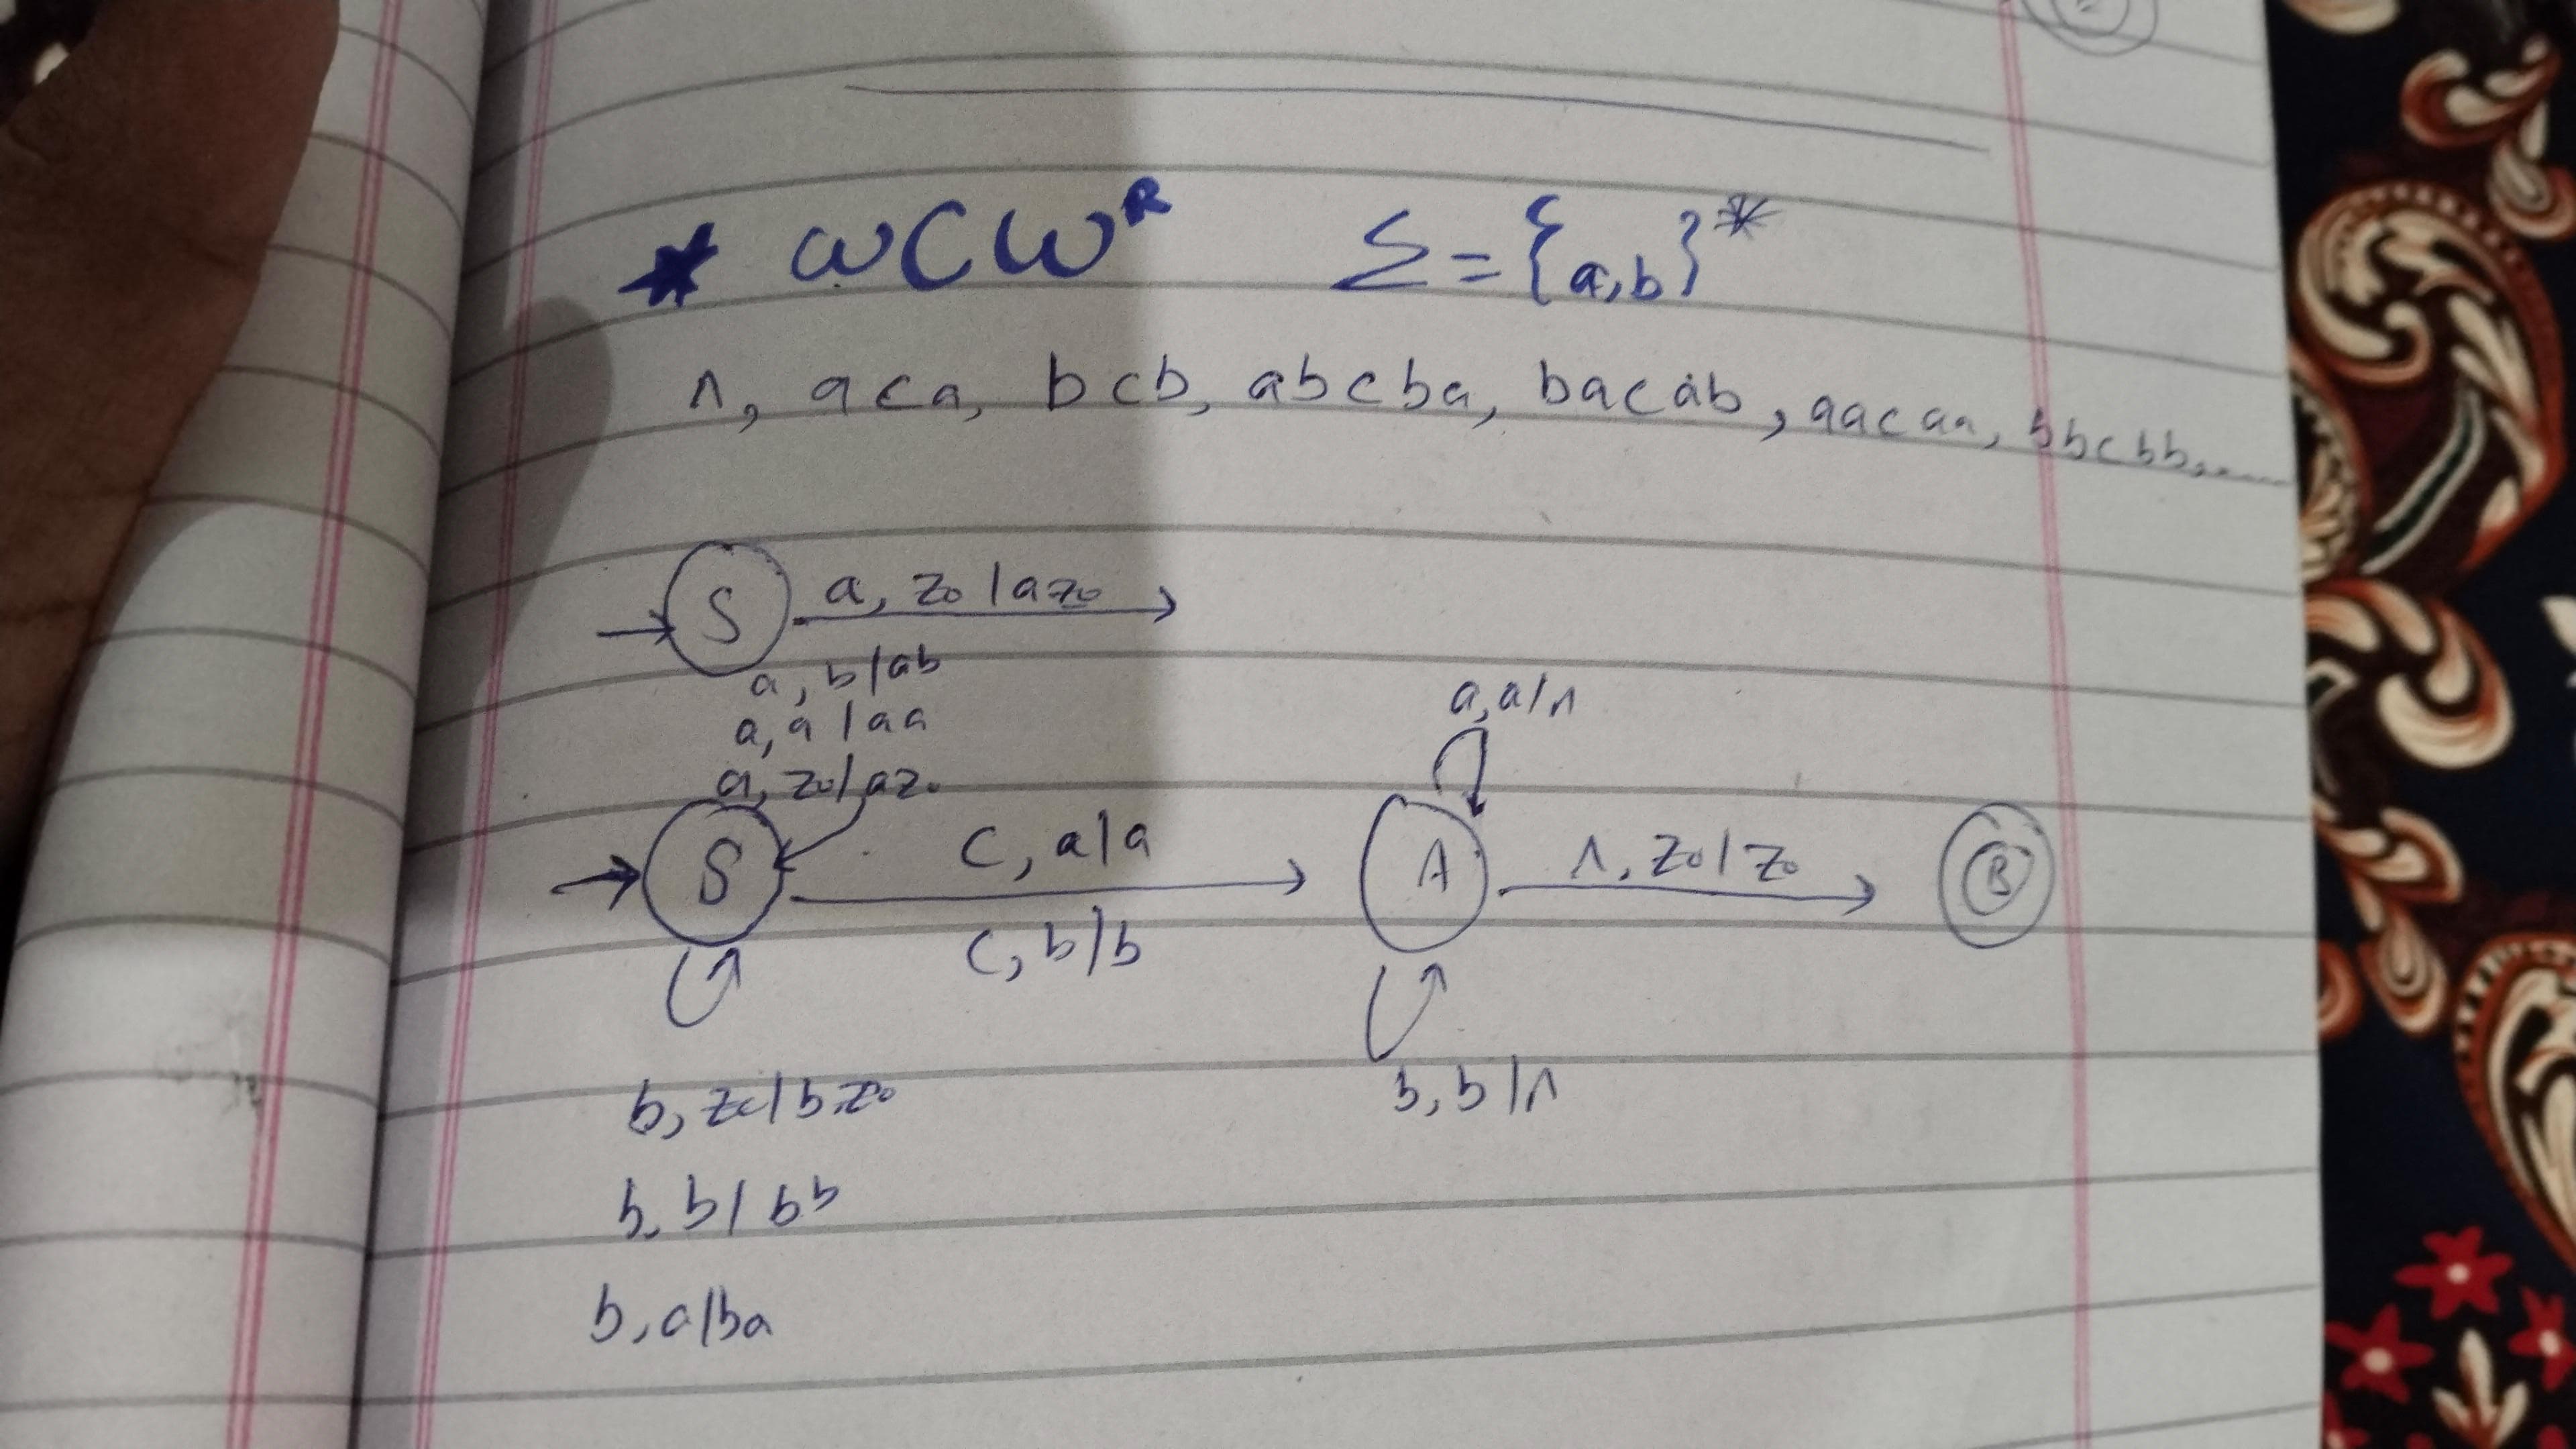 ★ ωCωᴿ Σ={a,b}*
Λ, aca, bcb, abcba, bacab, aacaa, bbcbb,....
S a, z₀ / az₀
a, b/ab
a, a / aa
a, z₀/ az₀
a,a/Λ
S C, a/a A Λ, z₀ / z₀ B
C, b/b
b, z₀ / b z₀
b, b / Λ
b, b / bb
b, a/ba